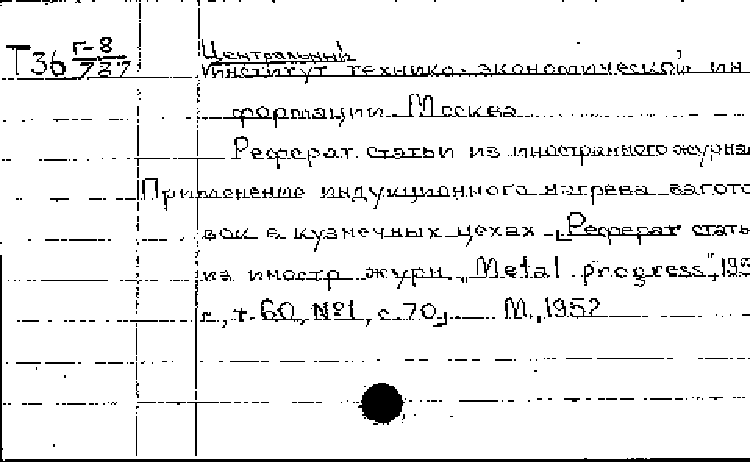 Т36 Г-8/737
Центральный
институт технико-экономической ин
формации. Москва
Реферат статьи из иностранного журна
Применение индукционного нагрева загото
вок в кузнечных цехах „Реферат статьи
из иностр журн. „Metal progress", 195
г., т. 60, №1, с. 70„ М., 1952